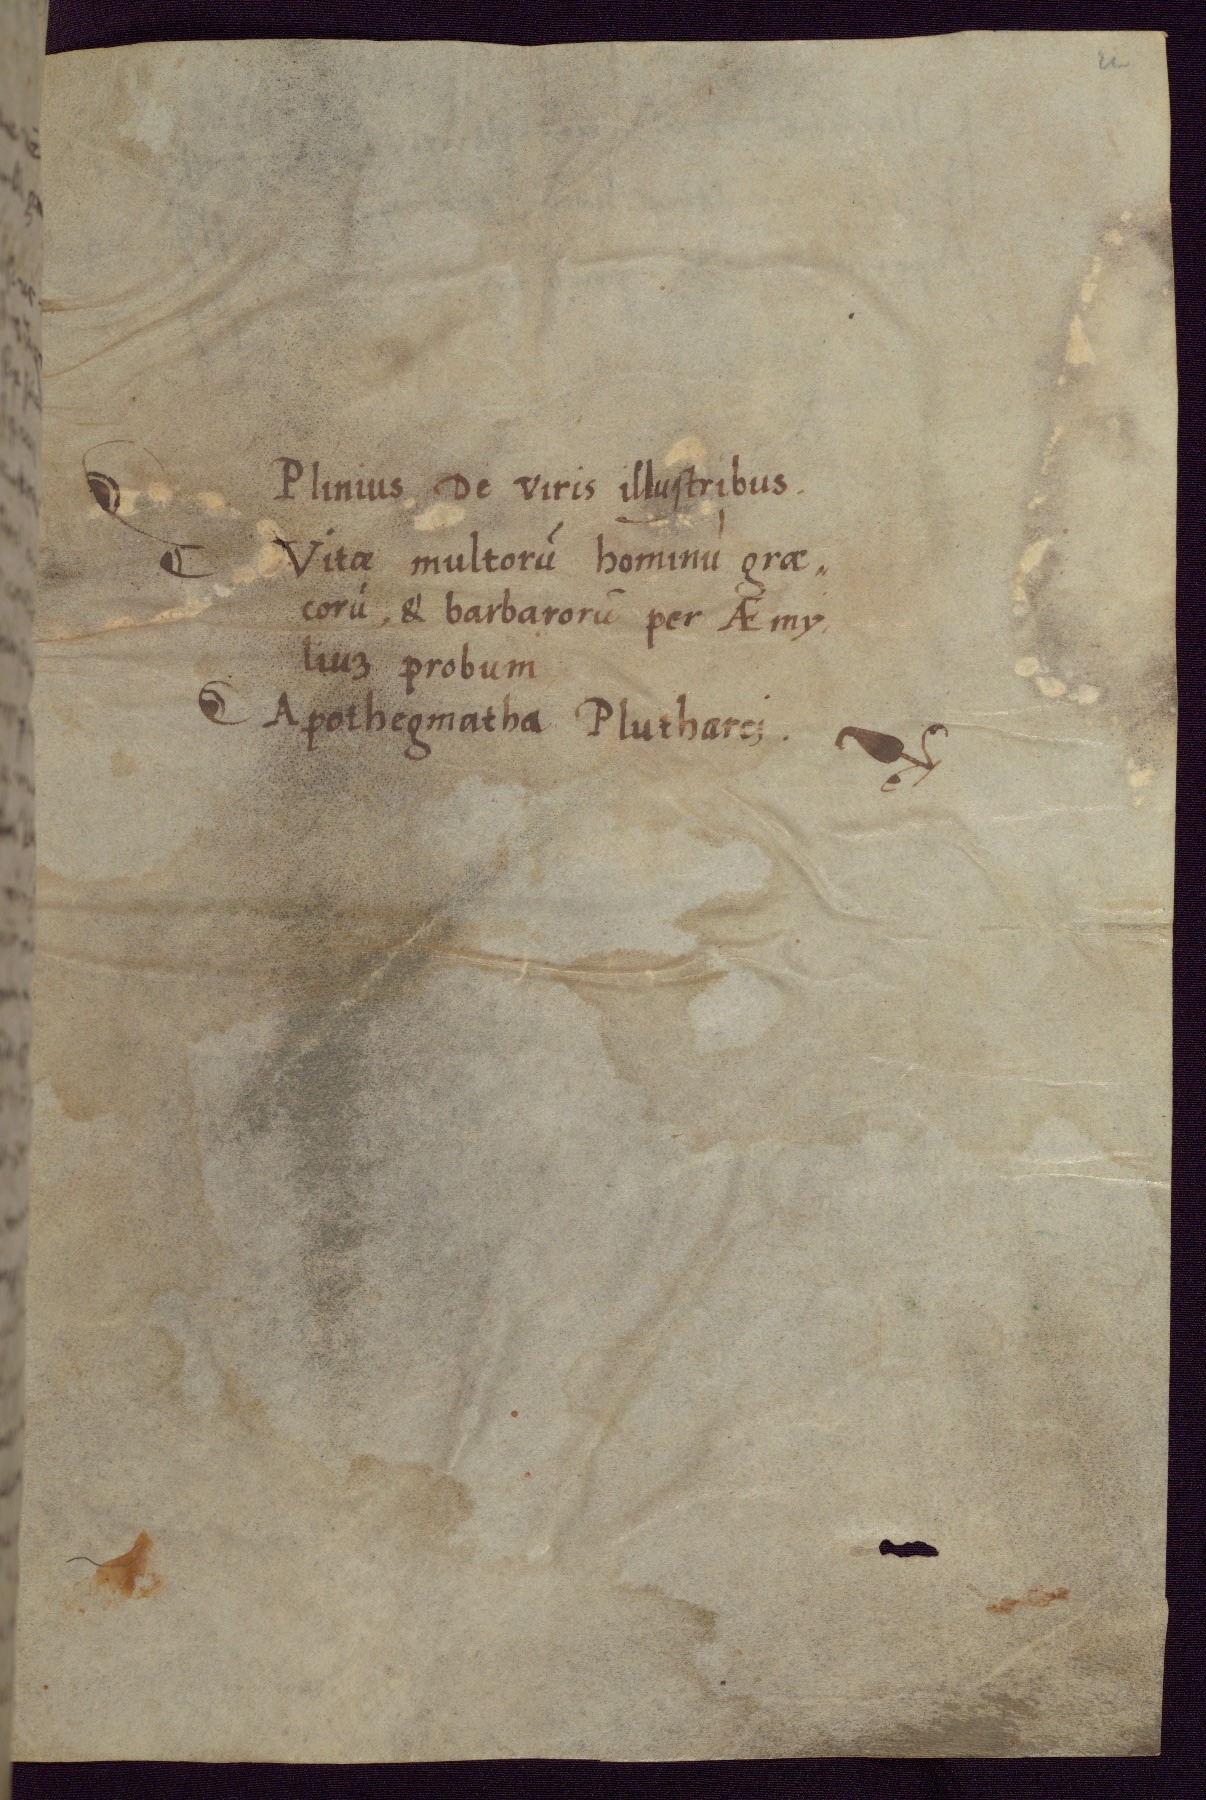 Plinius De viris illustribus.
Vitæ multorū hominū græ„
corū, & barbarorū per Æmy,
liuꝫ probum
Apothegmatha Plutharcj.